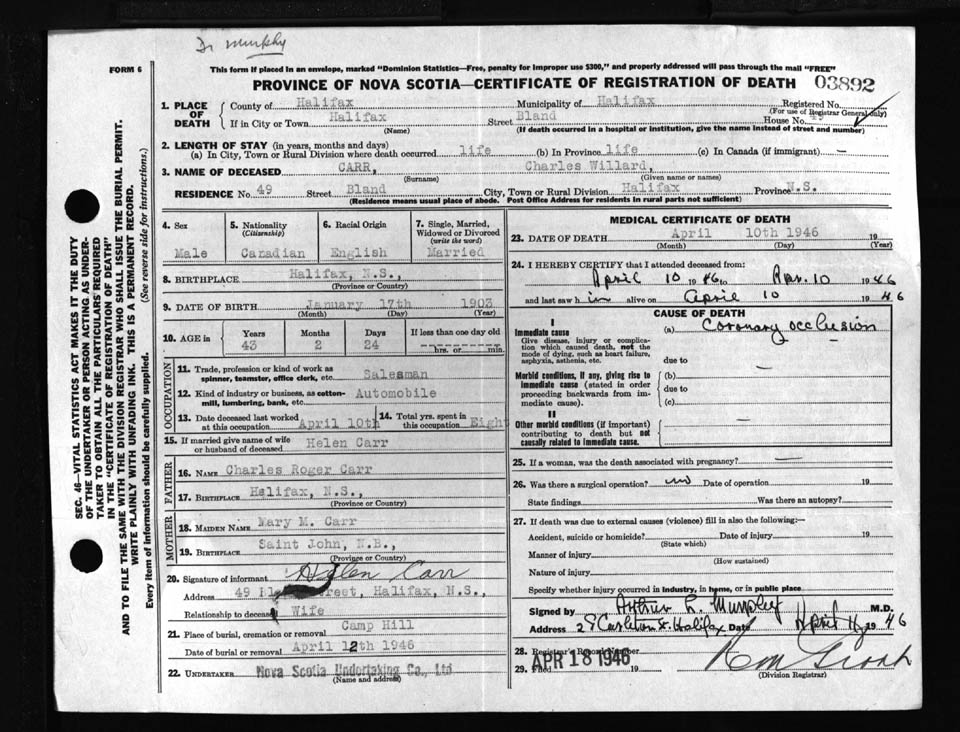 Dr Murphy
FORM 6
This form if placed in an envelope, marked "Dominion Statistics—Free, penalty for improper use $300," and properly addressed will pass through the mail "FREE"
PROVINCE OF NOVA SCOTIA—CERTIFICATE OF REGISTRATION OF DEATH 03892
1. PLACE OF DEATH County of Halifax Municipality of Halifax Registered No.
(For use of Registrar General only)
If in City or Town Halifax Street Bland House No. 49
(Name) (If death occurred in a hospital or institution, give the name instead of street and number)
2. LENGTH OF STAY (in years, months and days)
(a) In City, Town or Rural Division where death occurred life (b) In Province life (c) In Canada (if immigrant) —
3. NAME OF DECEASED CARR, Charles Willard,
(Surname) (Given name or names)
RESIDENCE No. 49 Street Bland City, Town or Rural Division Halifax Province N.S.
(Residence means usual place of abode. Post Office Address for residents in rural parts not sufficient)
4. Sex Male
5. Nationality (Citizenship) Canadian
6. Racial Origin English
7. Single, Married, Widowed or Divorced (write the word) Married
8. BIRTHPLACE Halifax, N.S.,
(Province or Country)
9. DATE OF BIRTH January 17th 1903
(Month) (Day) (Year)
10. AGE in Years 43 Months 2 Days 24 If less than one day old hrs. or min.
OCCUPATION
11. Trade, profession or kind of work as spinner, teamster, office clerk, etc. Salesman
12. Kind of industry or business, as cotton-mill, lumbering, bank, etc. Automobile
13. Date deceased last worked at this occupation April 10th
14. Total yrs. spent in this occupation Eight
15. If married give name of wife or husband of deceased Helen Carr
FATHER
16. NAME Charles Roger Carr
17. BIRTHPLACE Halifax, N.S.,
(Province or Country)
MOTHER
18. MAIDEN NAME Mary M. Carr
19. BIRTHPLACE Saint John, N.B.,
(Province or Country)
20. Signature of informant Helen Carr
Address 49 Street, Halifax, N.S.,
Relationship to deceased Wife
21. Place of burial, cremation or removal Camp Hill
Date of burial or removal April 12th 1946
22. UNDERTAKER Nova Scotia Undertaking Co., Ltd
(Name and address)
MEDICAL CERTIFICATE OF DEATH
23. DATE OF DEATH April 10th 1946 19
(Month) (Day) (Year)
24. I HEREBY CERTIFY that I attended deceased from:
April 10 1946 to Apr. 10 1946
and last saw h im alive on April 10 1946
CAUSE OF DEATH
I
Immediate cause (a) Coronary occlusion
Give disease, injury or complication which caused death, not the mode of dying, such as heart failure, asphyxia, asthenia, etc.
due to
Morbid conditions, if any, giving rise to immediate cause (stated in order proceeding backwards from immediate cause). (b) —
due to
(c)
II
Other morbid conditions (if important) contributing to death but not causally related to immediate cause. —
25. If a woman, was the death associated with pregnancy? —
26. Was there a surgical operation? no Date of operation 19
State findings Was there an autopsy?
27. If death was due to external causes (violence) fill in also the following:—
Accident, suicide or homicide? Date of injury 19
(State which)
Manner of injury
(How sustained)
Nature of injury
Specify whether injury occurred in industry, in home, or in public place
Signed by Arthur L. Murphy M.D.
Address 28 Carleton St. Halifax Date April 11, 1946
28. Registrar's Record Number
29. Filed APR 18 1946 19
(Division Registrar)
SEC. 46—VITAL STATISTICS ACT MAKES IT THE DUTY
OF THE UNDERTAKER OR PERSON ACTING AS UNDER-
TAKER TO OBTAIN ALL THE PARTICULARS REQUIRED
IN THE "CERTIFICATE OF REGISTRATION OF DEATH"
AND TO FILE THE SAME WITH THE DIVISION REGISTRAR WHO SHALL ISSUE THE BURIAL PERMIT.
WRITE PLAINLY WITH UNFADING INK. THIS IS A PERMANENT RECORD.
Every item of information should be carefully supplied. (See reverse side for instructions.)